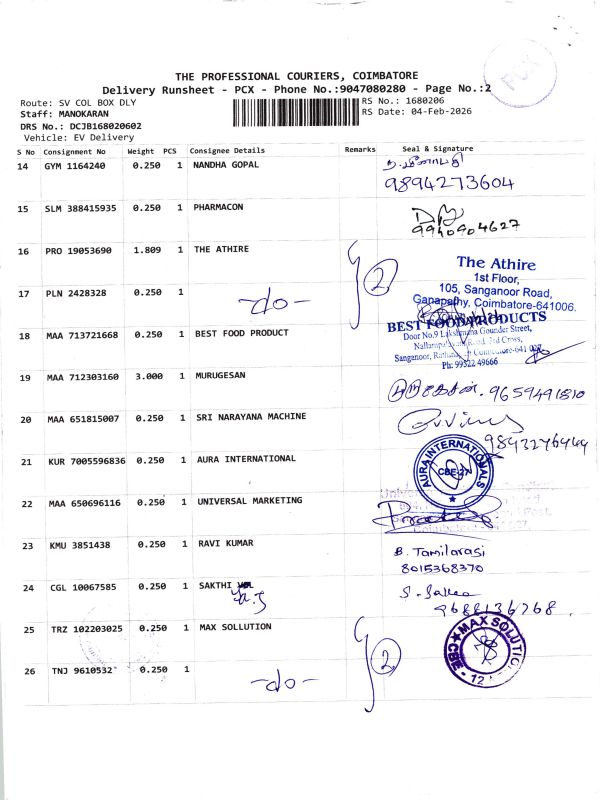 THE PROFESSIONAL COURIERS, COIMBATORE
Delivery Runsheet - PCX - Phone No.:9047080280 - Page No.:2
Route: SV COL BOX DLY
RS No.: 1680206
Staff: MANOKARAN
RS Date: 04-Feb-2026
DRS No.: DCJB168020602
Vehicle: EV Delivery
S No Consignment No Weight PCS Consignee Details Remarks Seal & Signature
14 GYM 1164240 0.250 1 NANDHA GOPAL
9894273604
15 SLM 388415935 0.250 1 PHARMACON
9940904627
16 PRO 19053690 1.809 1 THE ATHIRE
2
The Athire
1st Floor,
105, Sanganoor Road,
Ganapathy, Coimbatore-641006.
17 PLN 2428328 0.250 1 -do-
18 MAA 713721668 0.250 1 BEST FOOD PRODUCT
BEST FOOD PRODUCTS
Door No.9 Lakshmana Gounder Street,
3rd Cross,
Sanganoor,
Ph: 99522 49666
19 MAA 712303160 3.000 1 MURUGESAN
முருகேசன். 9659491810
20 MAA 651815007 0.250 1 SRI NARAYANA MACHINE
21 KUR 7005596836 0.250 1 AURA INTERNATIONAL
AURA INTERNATIONALS
CBE-27
22 MAA 650696116 0.250 1 UNIVERSAL MARKETING
23 KMU 3851438 0.250 1 RAVI KUMAR
B. Tamilarasi
8015368370
24 CGL 10067585 0.250 1 SAKTHI
9688136768
25 TRZ 102203025 0.250 1 MAX SOLLUTION
2
MAX SOLUTION
CBE - 12
26 TNJ 9610532 0.250 1 -do-